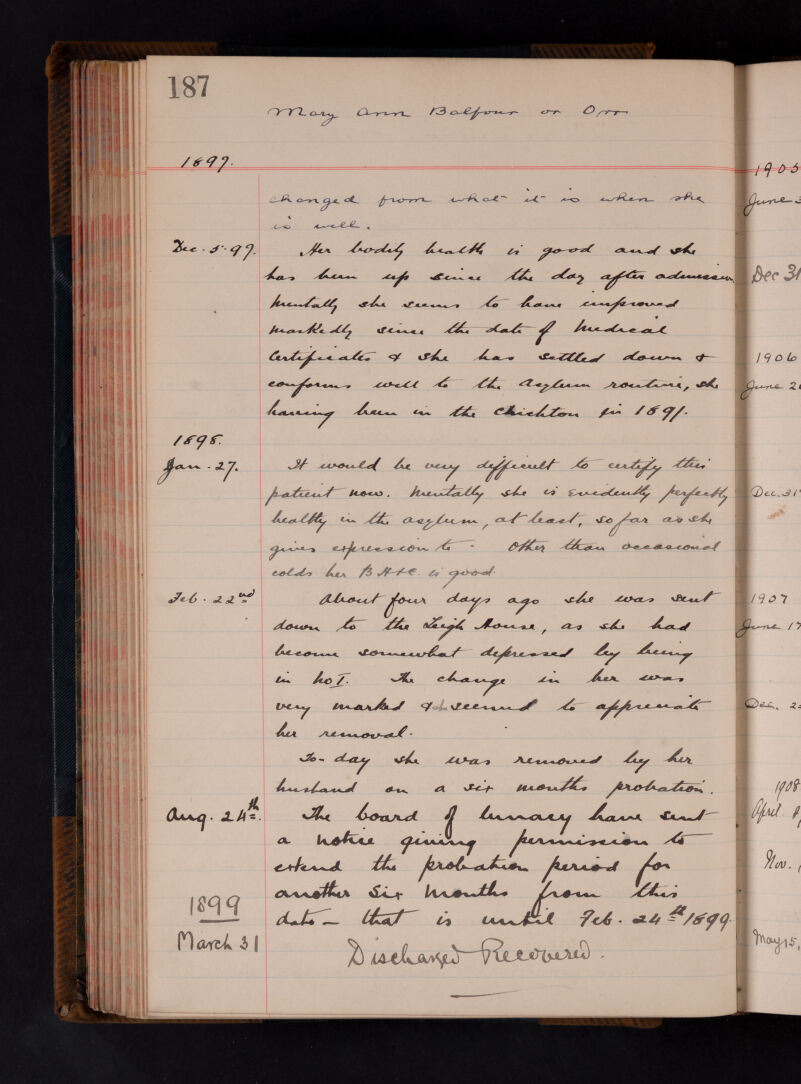 187
Mary Ann Balfour or Orr
1897.
changed from what it is when she
is well.
Dec. 5. 97. Her bodily health is good and she
has been up since the day after admission
Mentally she seems to have improved
markedly since the date of Medical
Certificates & she has settled down &
conforms well to the Asylum routine, she
having been in the Crichton in 1891.
1898.
Jan. 27. It would be very difficult to certify this
patient now. Mentally she is evidently perfectly
healthy in the asylum, at least, so far as she
gives expression to. Other than occasional
colds her B H+C. is good.
Feb. 22nd About four days ago she was sent
down to the Leigh House, as she had
become somewhat depressed by being
in No I. The change in her was
very marked & she seemed to appreciate
her removal.
To-day she was removed by her
husband on a six months probation.
Aug. 24th. The board of lunacy have sent
a notice giving permission to
extend the probation period for
another Six Months from this
date – that is until Feb. 24th 1899.
1899
March 31 Discharged Recovered.
1905
June 3
Dec 31
1906
June 2
Dec. 31
1907
June 17
Dec. 2
1908
April
Nov.
May 15,